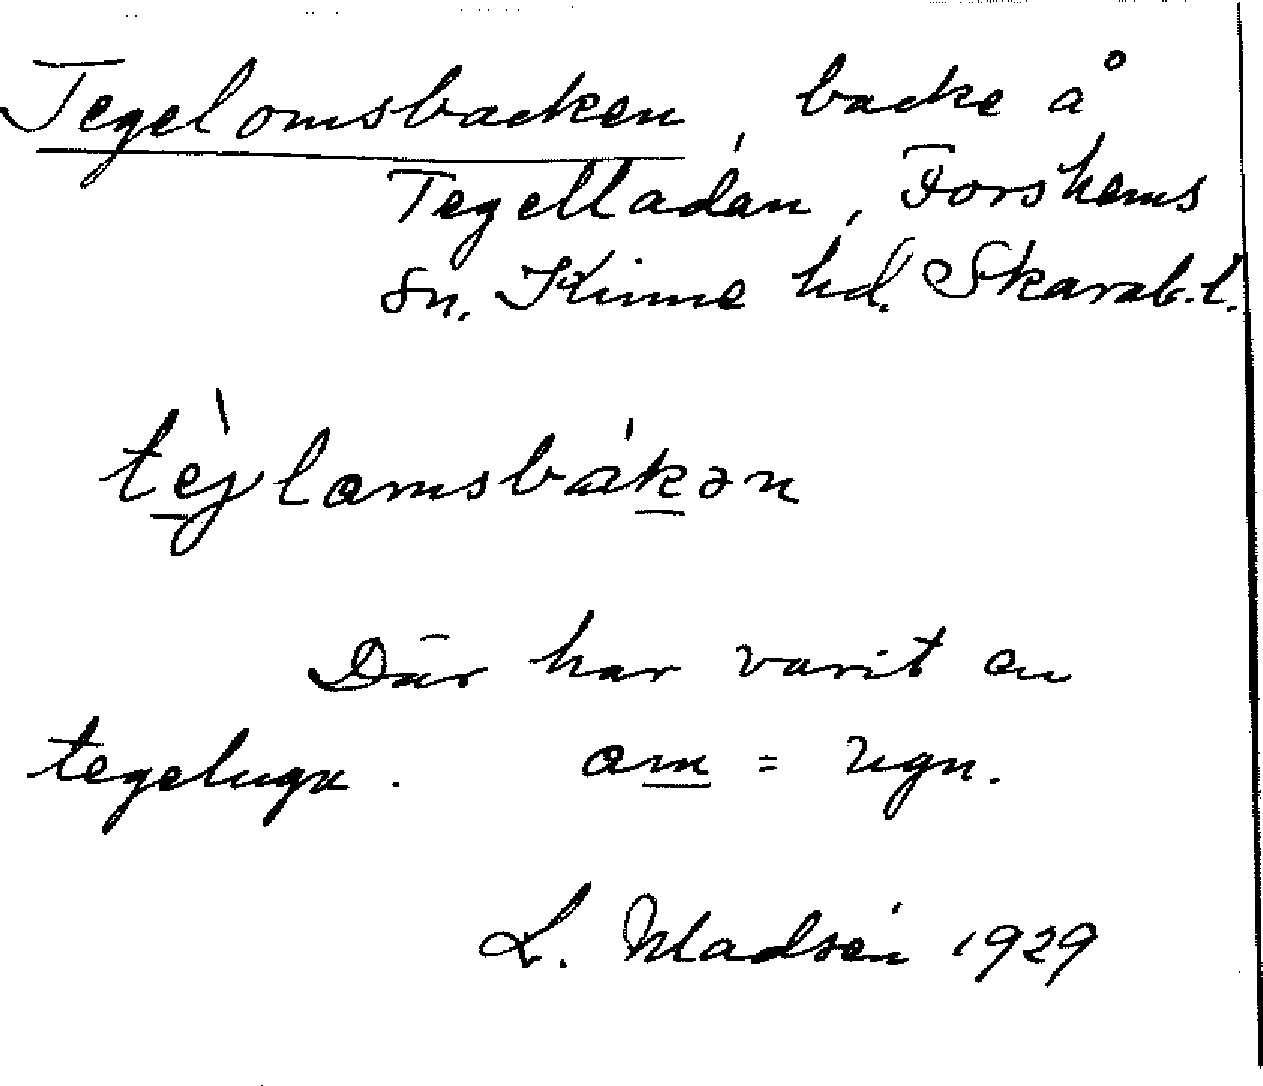 Tegelomsbacken, backe å
Tegelladan, Forshems
sn. Kinne hd. Skarab. l.
tèjlomsbákən
Där har varit en
tegelugn. om = ugn.
L. Madsén 1929